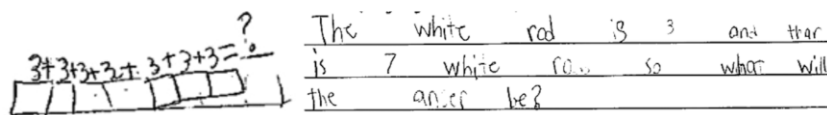 ?
3+3+3+3+3+3+3=
The white rod is 3 and thar
is 7 white so whar will
the anser be?